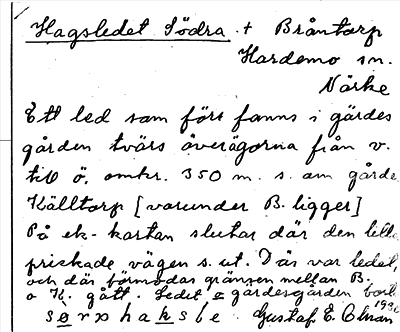 Hagsledet Södra + Bråntorp
Hardemo sn.
Närke
Ett led som förr fanns i gärdes
gården tvärs överägorna från v.
till ö. omkr. 350 m. s. om gårde
Källtorp [varunder B. ligger]
På ek. kartan slutar där den lille
prickade vägen s. ut. Där var ledet,
och där förmodas gränsen mellan B.
o K. gått. Ledet o gärdesgården bort
193
sørxhaksle Gustaf E. Ohman